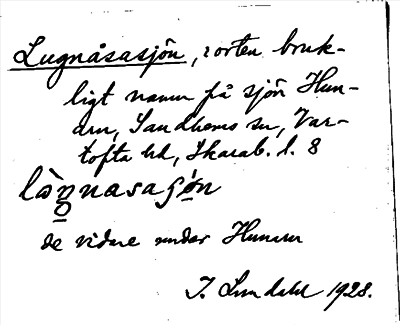 Lugnåsasjön, i orten bruk-
ligt namn på sjön Hun-
arn, Sandhems sn, Var-
tofta hd, Skarab. l. 8
làgnasaʃó̀n
se vidare under Hunarn
I. Lundahl 1928.